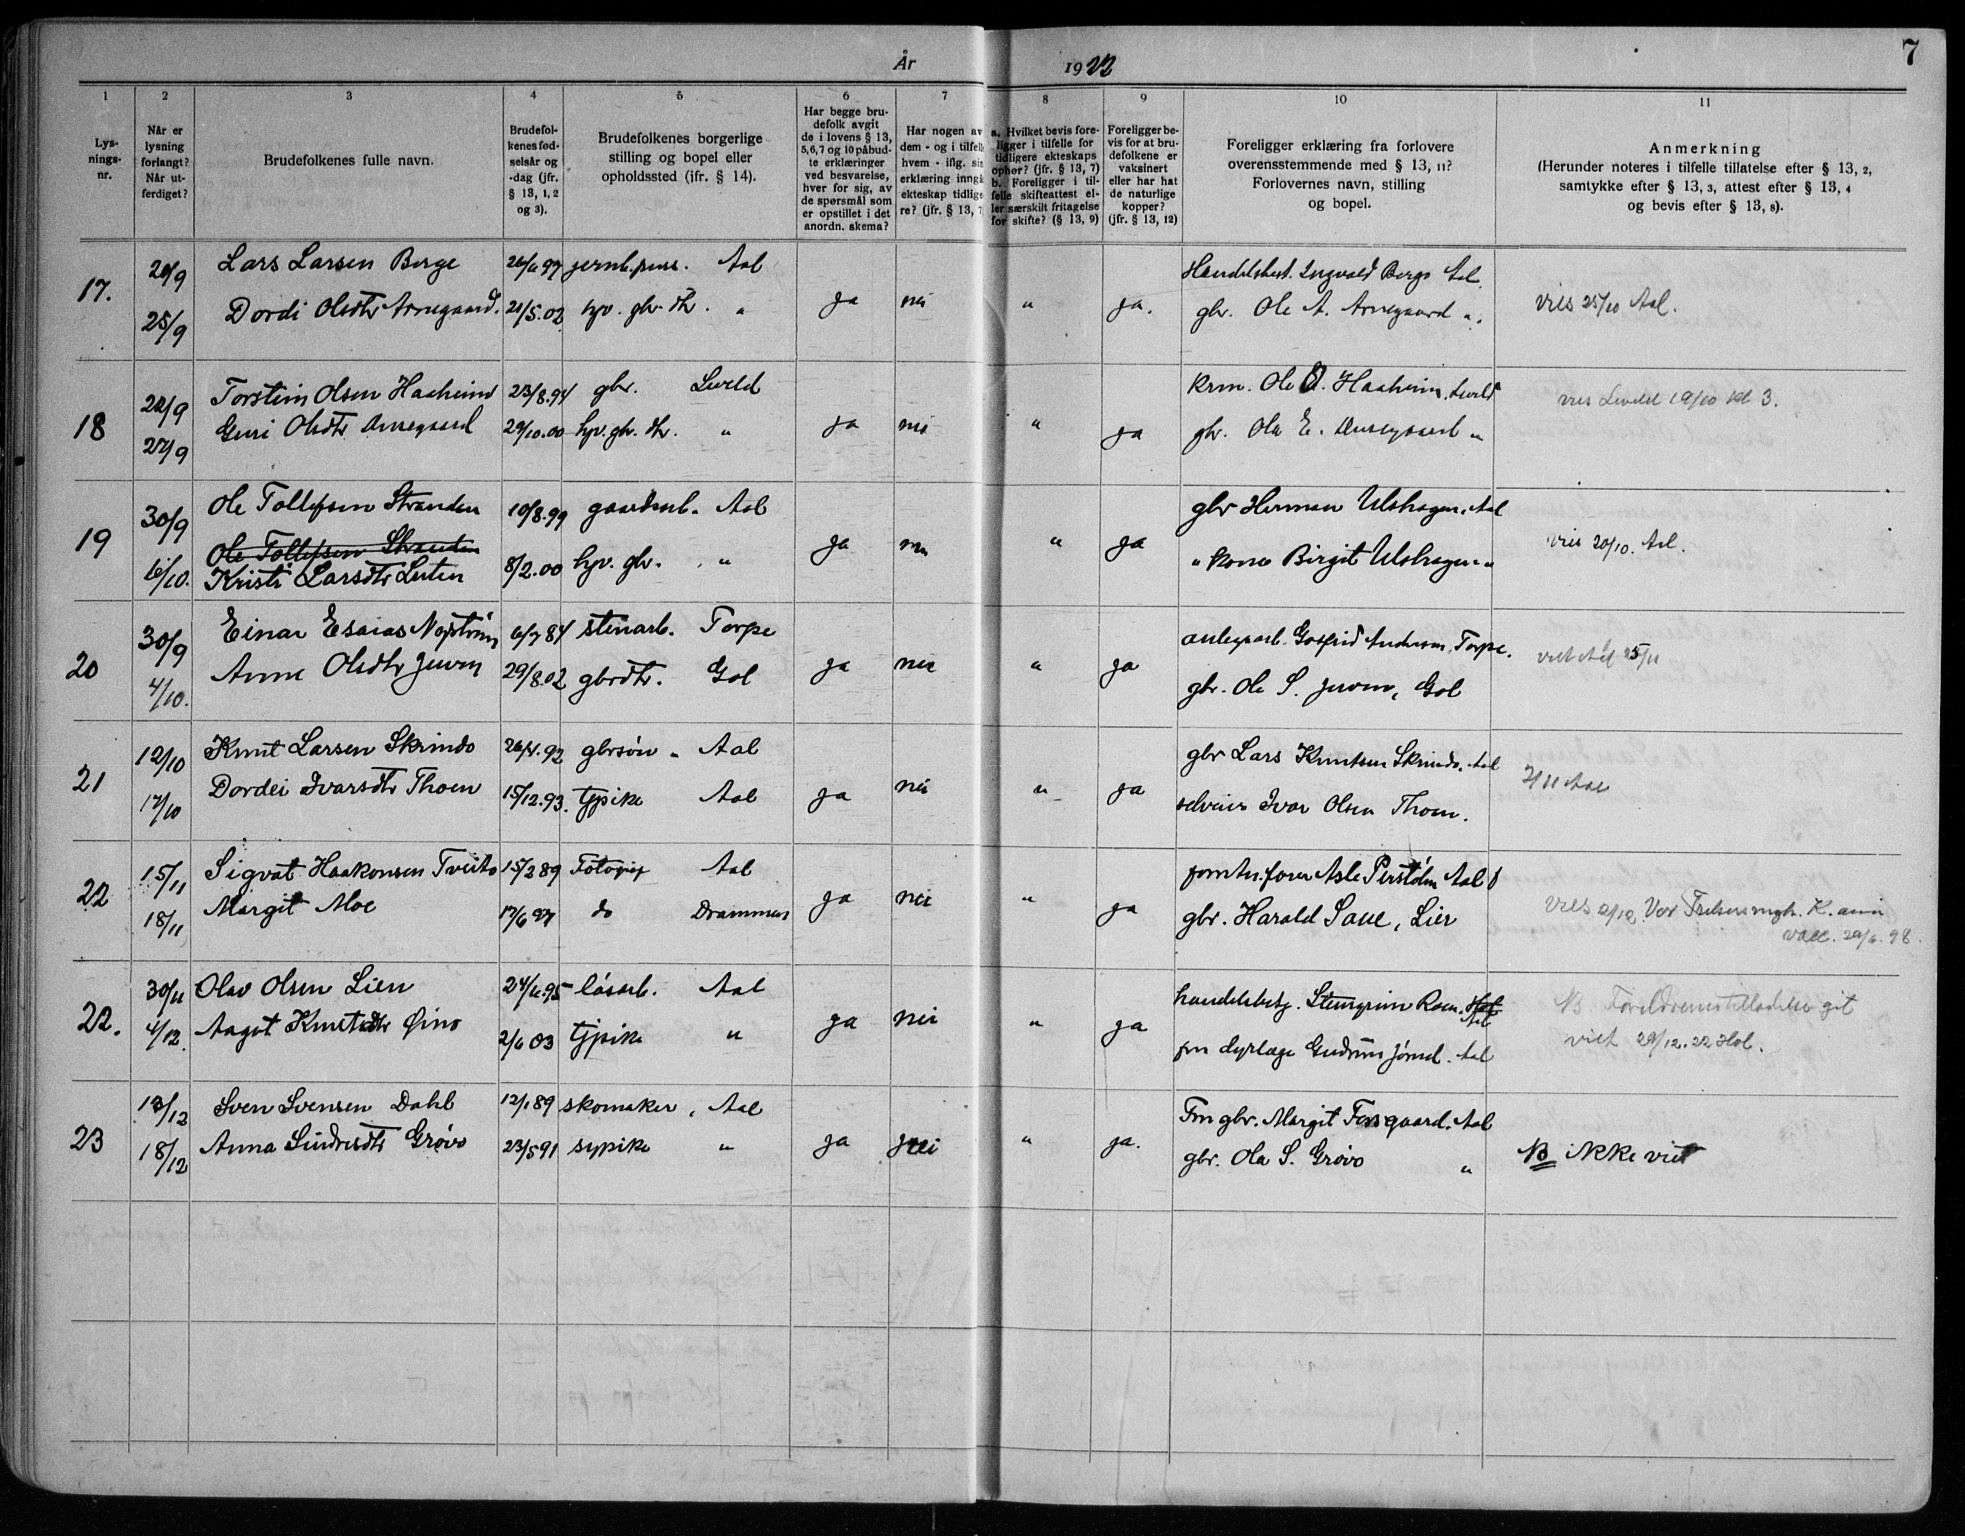 7
År 1922
1 2 3 4 5 6 7 8 9 10 11
Lys-
nings-
nr.
Når er
lysning
forlangt?
Når ut-
ferdiget?
Brudefolkenes fulle navn.
Brudefol-
kenes fød-
selsår og
-dag (jfr.
§ 13, 1, 2
og 3).
Brudefolkenes borgerlige
stilling og bopel eller
opholdssted (ifr. § 14).
Har begge bru-
defolk avgit
de i lovens § 13,
5,6,7 og 10 påbud-
te erklæringer
ved besvarelse,
hver for sig, av
de spørsmål som
er opstillet i det
anordn. skema?
Har nogen av
dem - og i tilfelle
hvem - iflg. sin
erklæring inngå
ekteskap tidlige
re? (jfr. § 13, 7
a. Hvilket bevis fore-
ligger i tilfelle for
tidligere ekteskaps
ophør? (jfr. § 13, 7)
b. Foreligger i til-
felle skifteattest el-
ler særskilt fritagelse
for skifte? (§ 13, 9)
Foreligger be-
vis for at bru-
defolkene er
vaksinert
eller har hat
de naturlige
kopper?
(jfr. § 13, 12)
Foreligger erklæring fra forlovere
overensstemmende med § 13, 11?
Forlovernes navn, stilling
og bopel.
Anmerkning
(Herunder noteres i tilfelle tillatelse efter § 13, 2,
samtykke efter § 13, 3, attest efter § 13, 4
og bevis efter § 13, 8).
17. 20/9 Lars Larsen Berge 26/6 97 jernb. Aal Handelsbest. Ingvald Berge Aal
25/9 Dordi Olsdtr Arnegaard. 21/5.02 hpv. gbr. dtr. " ja nei " ja. gbr. Ole A. Arnegaard ". vies 25/10 Aal.
18 22/9 Torstein Olsen Haaheim 23/8.94 gbr. Leveld krm. Ole O. Haaheim, Leveld vies Leveld 19/10 kl 3.
27/9 Guri Olsdtr Arnegaard 29/10.00 hpv. gbr. dtr. " ja nei " ja gbr. Ola E. Arnegaard "
19 30/9 Ole Tollefsen Stranden 10/8.99 gaardarb. Aal gbr Herman Ulshagen. Aal
Ole Tollefsen Stranden ja nei " ja vies 20/10. Aal.
6/10. Kristi Larsdtr Luten 8/2.00 hpv. gbr. " " kone Birgit Ulshagen "
20 30/9 Einar Esaias 6/7 84 stenarb. Torpe anlegsarb. Gotfrid Anderson, Torpe.
4/10. Anne Olsdtr Jeven 29/8.02 gbrdtr. Gol ja nei " ja gbr. Ole S. Jeven, Gol viet Aal 25/11
21 12/10 Knut Larsen Skrindo 26/4.92 gbrsøn. Aal gbr Lars Knutsen Skrindo. Aal
17/10 Dordei Ivarsdtr Thoen 15/12.93. tjpike Aal ja nei " ja selveier Ivar Olsen Thoen. 2/11 Aal
22 15/11 Sigvat Haakonsen Tveito 15/2 89 Fotograf Aal Asle Perstølen Aal
18/11 Margit Moe 17/6 97 do Drammen ja nei " ja gbr. Harald Saue, Lier vies 2/12 Vor Frelsers mgh. K.
vacc. 29/6. 98.
22. 30/11 Olav Olsen Lien 24/6.95 løsarb. Aal handelsbetj. Steingrim Roen. Hol NB Foreldrenes tilladelse git
Aal
4/12. Aagot Knutsdtr Øino 2/6 03 tjpike " ja nei " ja frn dyrlæge Gudrun Aal viet 29/12.22 Hol.
23 13/12 Sven Svensen Dahl 12/1 89 skomaker, Aal Frn gbr. Margit Fossgaard. Aal
18/12 Anna Sindresdtr Grøvo 23/5 91 sypike " ja nei " ja. gbr. Ola S. Grøvo " NB ikke viet